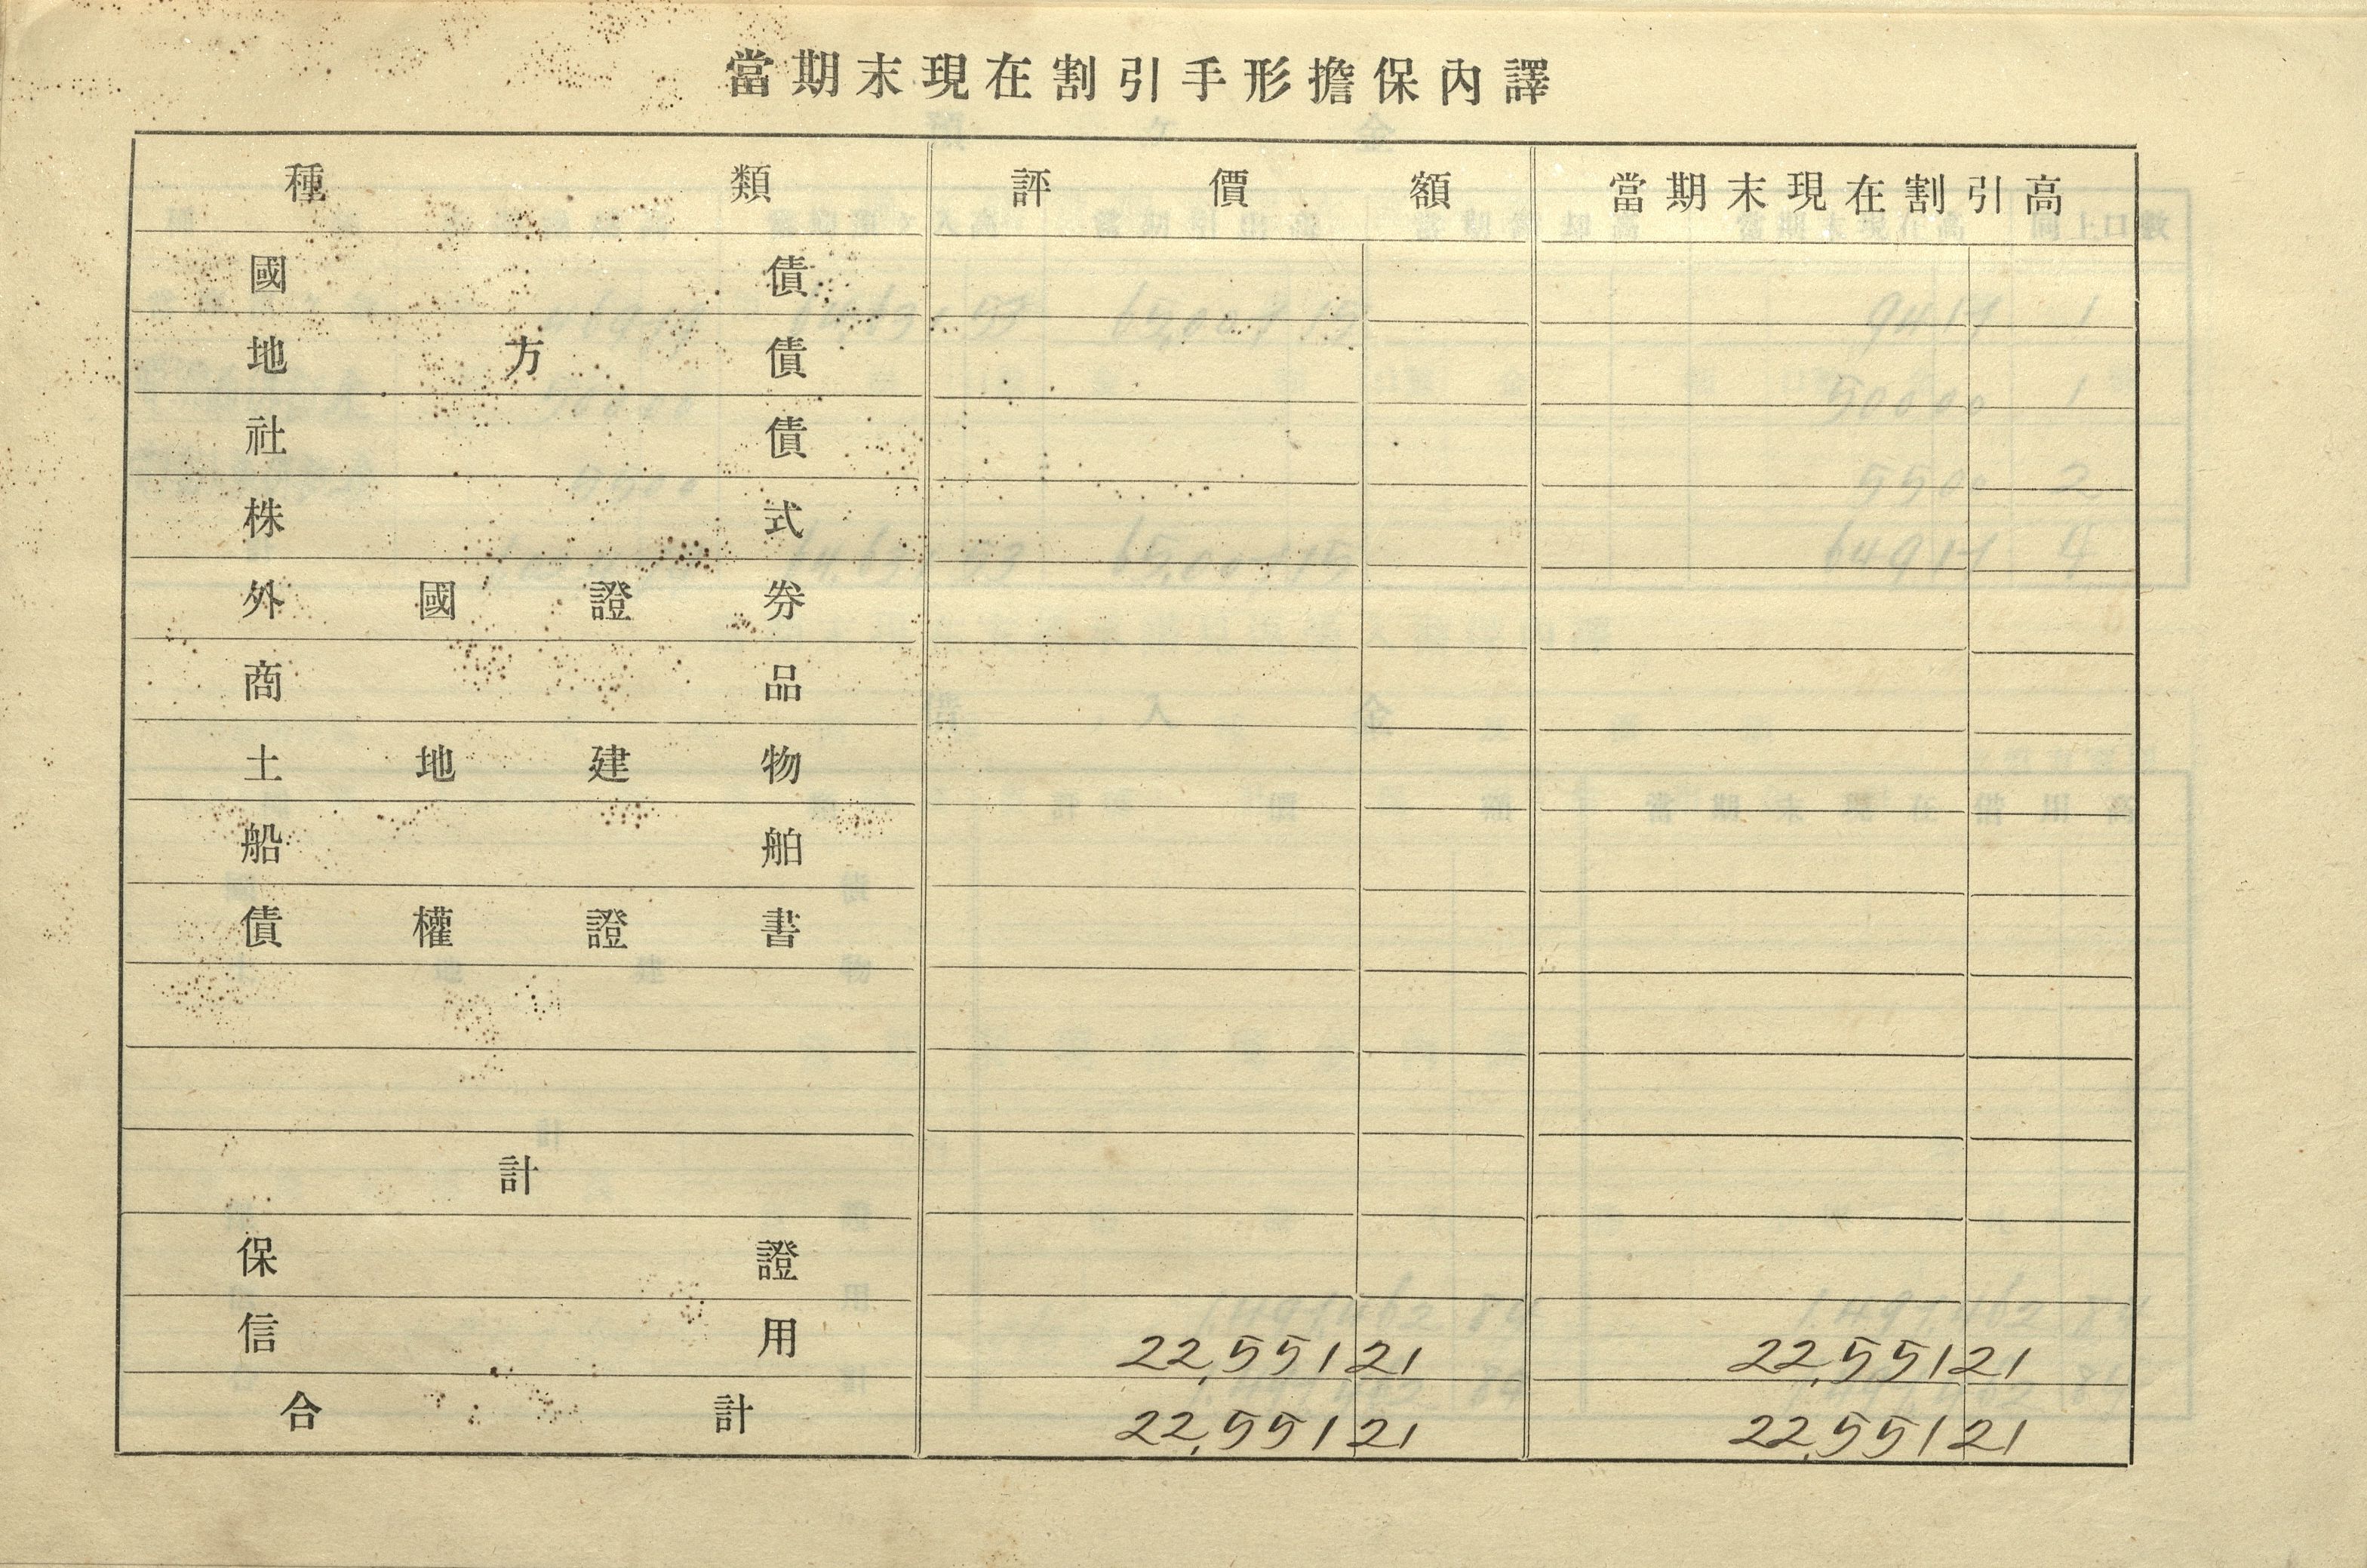 當期末現在割引手形擔保內譯
種類 評價額 當期末現在割引高
國債
地方債
社債
株式
外國證券
商品
土地建物
船舶
債權證書
計
保證
信用 22,551 21 22,551 21
合計 22,551 21 22,551 21